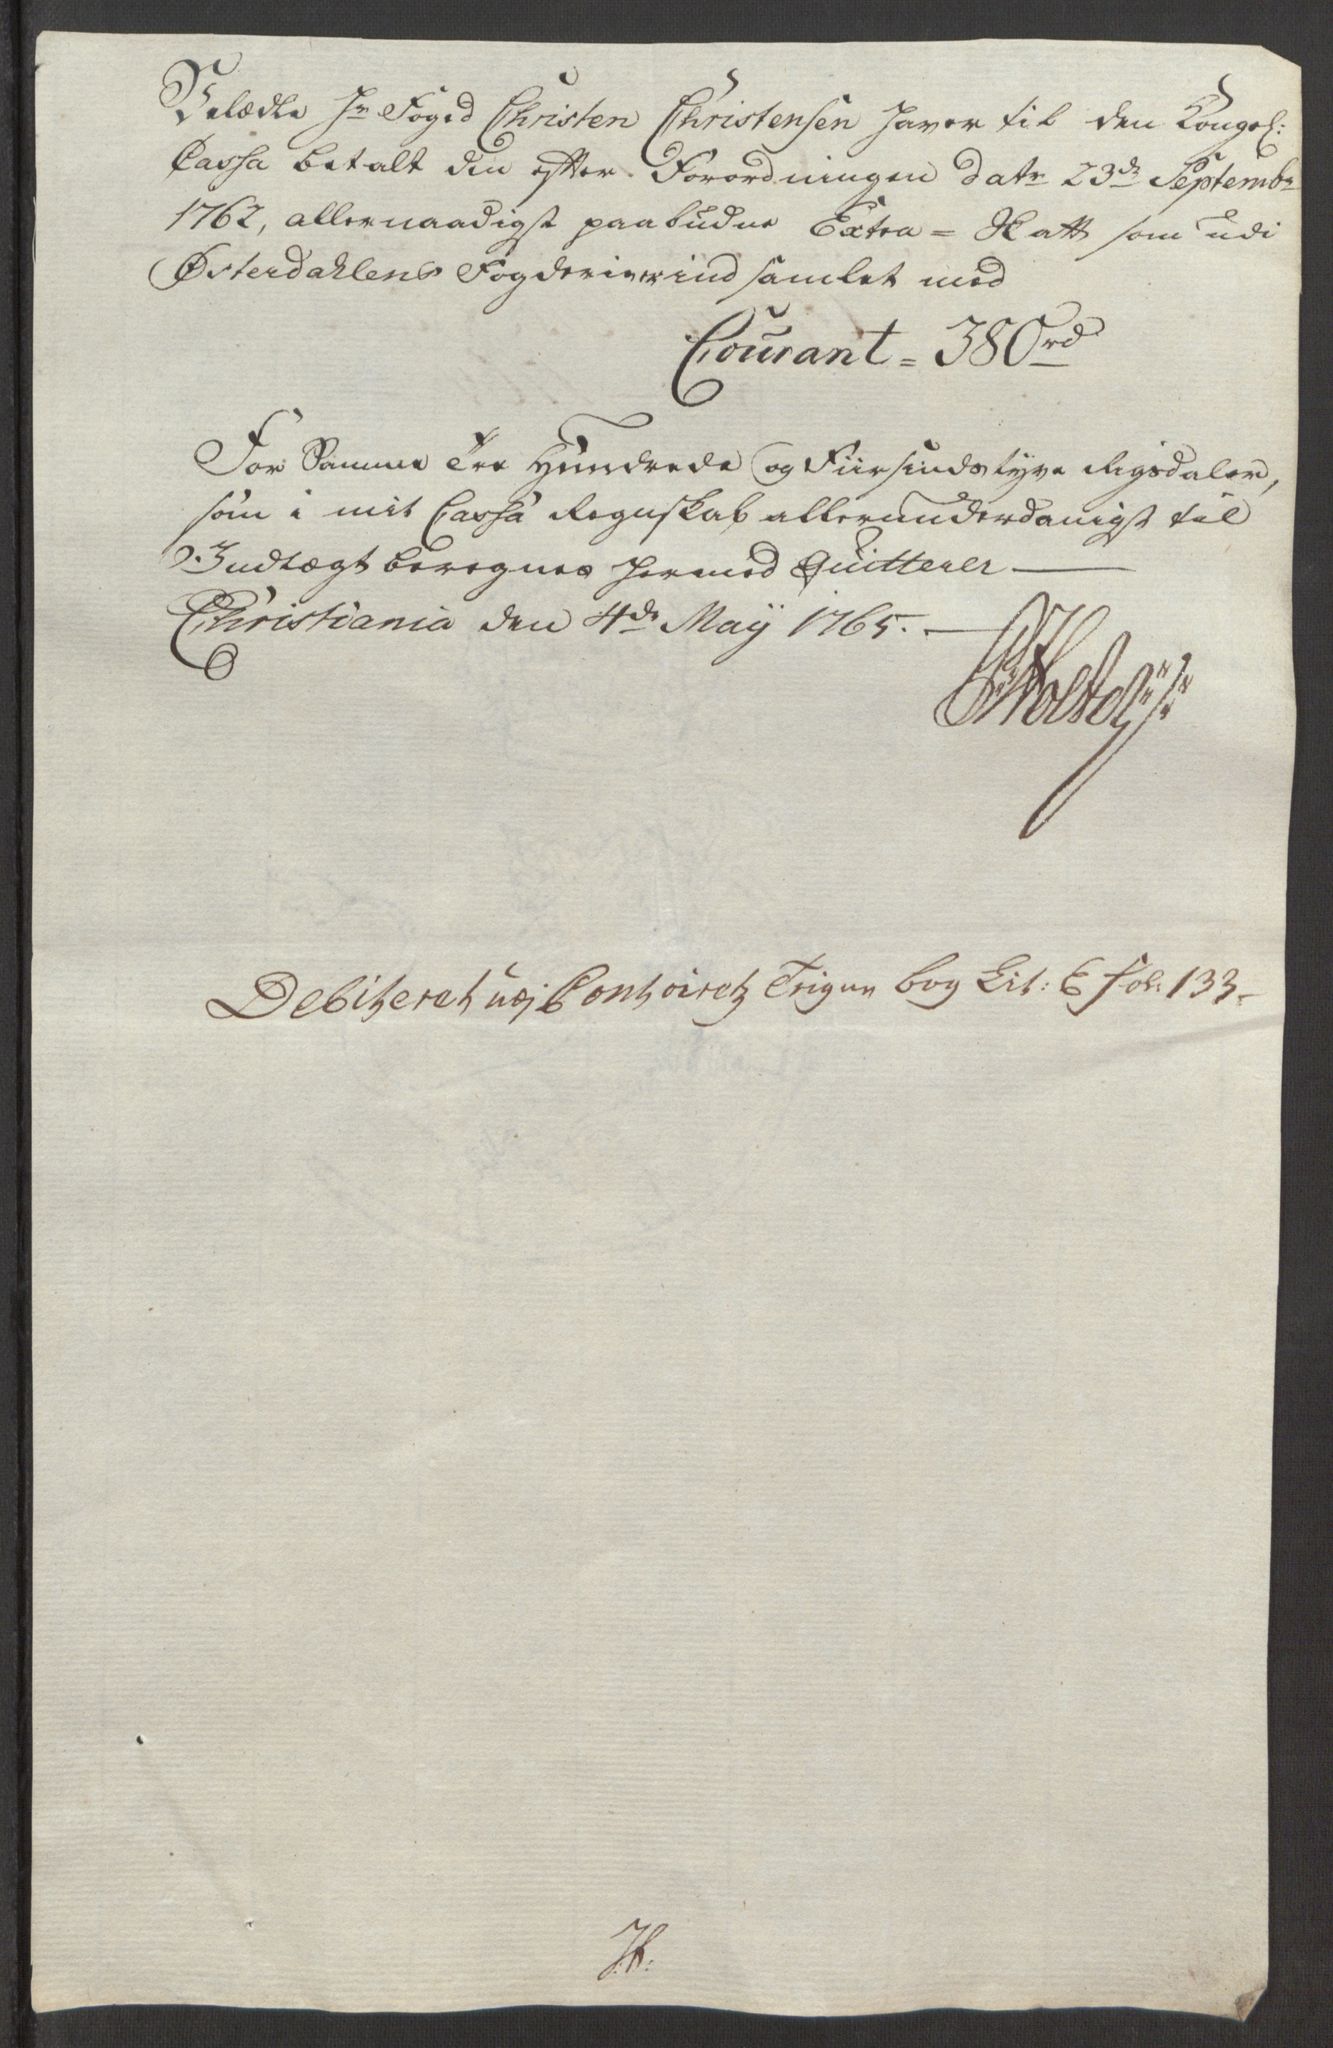 Velædle Hr Foged Christen Christensen haver til den Kongel:
Cassa betalt den efter Forordningen datr 23de Septembr
1762, allernaadigst paabudne Extra = Skatt som udi
Østerdahlens Fogderie er ind samlet med
Courant = 380rd
For Samme Tre Hundrede og Fiirsindstyve Rigsdaler,
som i mit Cassa Regnskab allerunderdanigst til
Indtægt beregnes hermed Quitterer
Christiania den 4de Maÿ 1765.
Debiteret udj Contoiretz bog Lit: E fol: 133